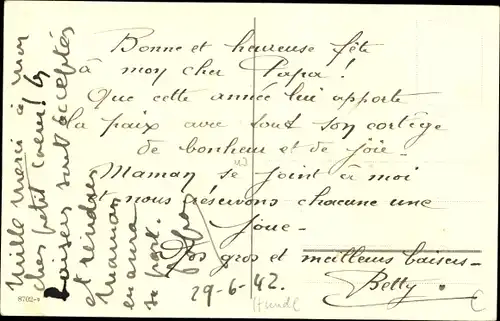 Bonne et heureuse fête
à mon cher Papa!
Que cette année lui apporte
la paix avec tout son cortège
de bonheur et de joie.
Maman se joint à moi
et nous réservons chacune une
joue.
Nos gros et meilleurs baisers
Betty.
29-6-42.
Mille mercis à mon
cher petit coeur! Les
baisers sont acceptés
et rendus
Maman
en aura
sa part.
8702-2